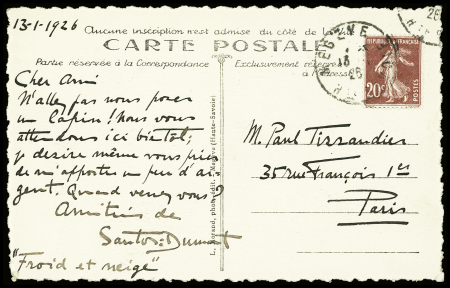 13-1-1926
Aucune inscription n'est admise du côté de la
CARTE POSTALE
Partie réservée à la Correspondance
Exclusivement réservé
à l'adresse
Cher Ami
N'allez pas nous poser
un Lapin! Nous vous
attendons ici bientôt;
je desire même vous prier
de m'apporter un peu d'ar-
gent. Quand venez vous?
Amitiés de
Santos=Dumont
"Froid et neige"
M. Paul Tissandier
35 rue François 1er
Paris
MEGÈVE
13
26
26
REPUBLIQUE FRANÇAISE
20c
POSTES
phot. édit. Megève (Haute-Savoie)